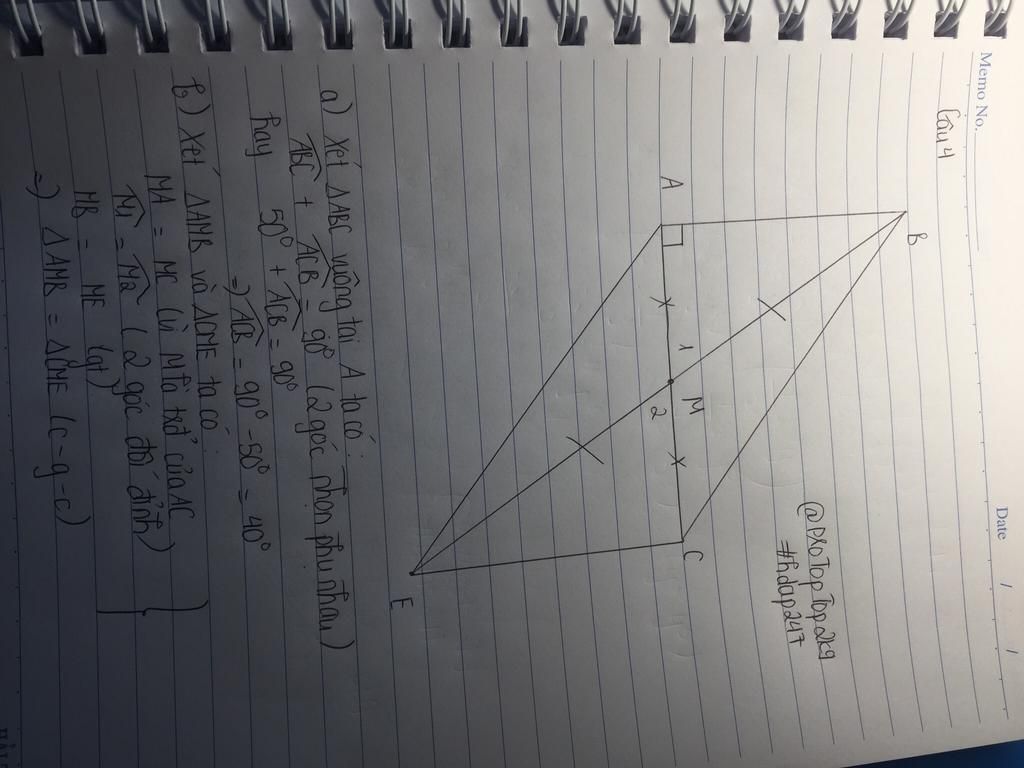 Memo No.
Date / /
Câu 4
@ProTopTop2k9
#hdap247
B
A
1
M
2
C
E
a) Xét ΔABC vuông tại A ta có:
\widehat{ABC} + \widehat{ACB} = 90° (2 góc nhọn phụ nhau)
hay 50° + \widehat{ACB} = 90°
=) \widehat{ACB} = 90° - 50° = 40°
b) Xét ΔAMB và ΔCME ta có:
MA = MC (vì M là trđ' của AC)
\widehat{M1} = \widehat{M2} (2 góc đối đỉnh)
MB = ME (gt)
=) ΔAMB = ΔCME (c-g-c)